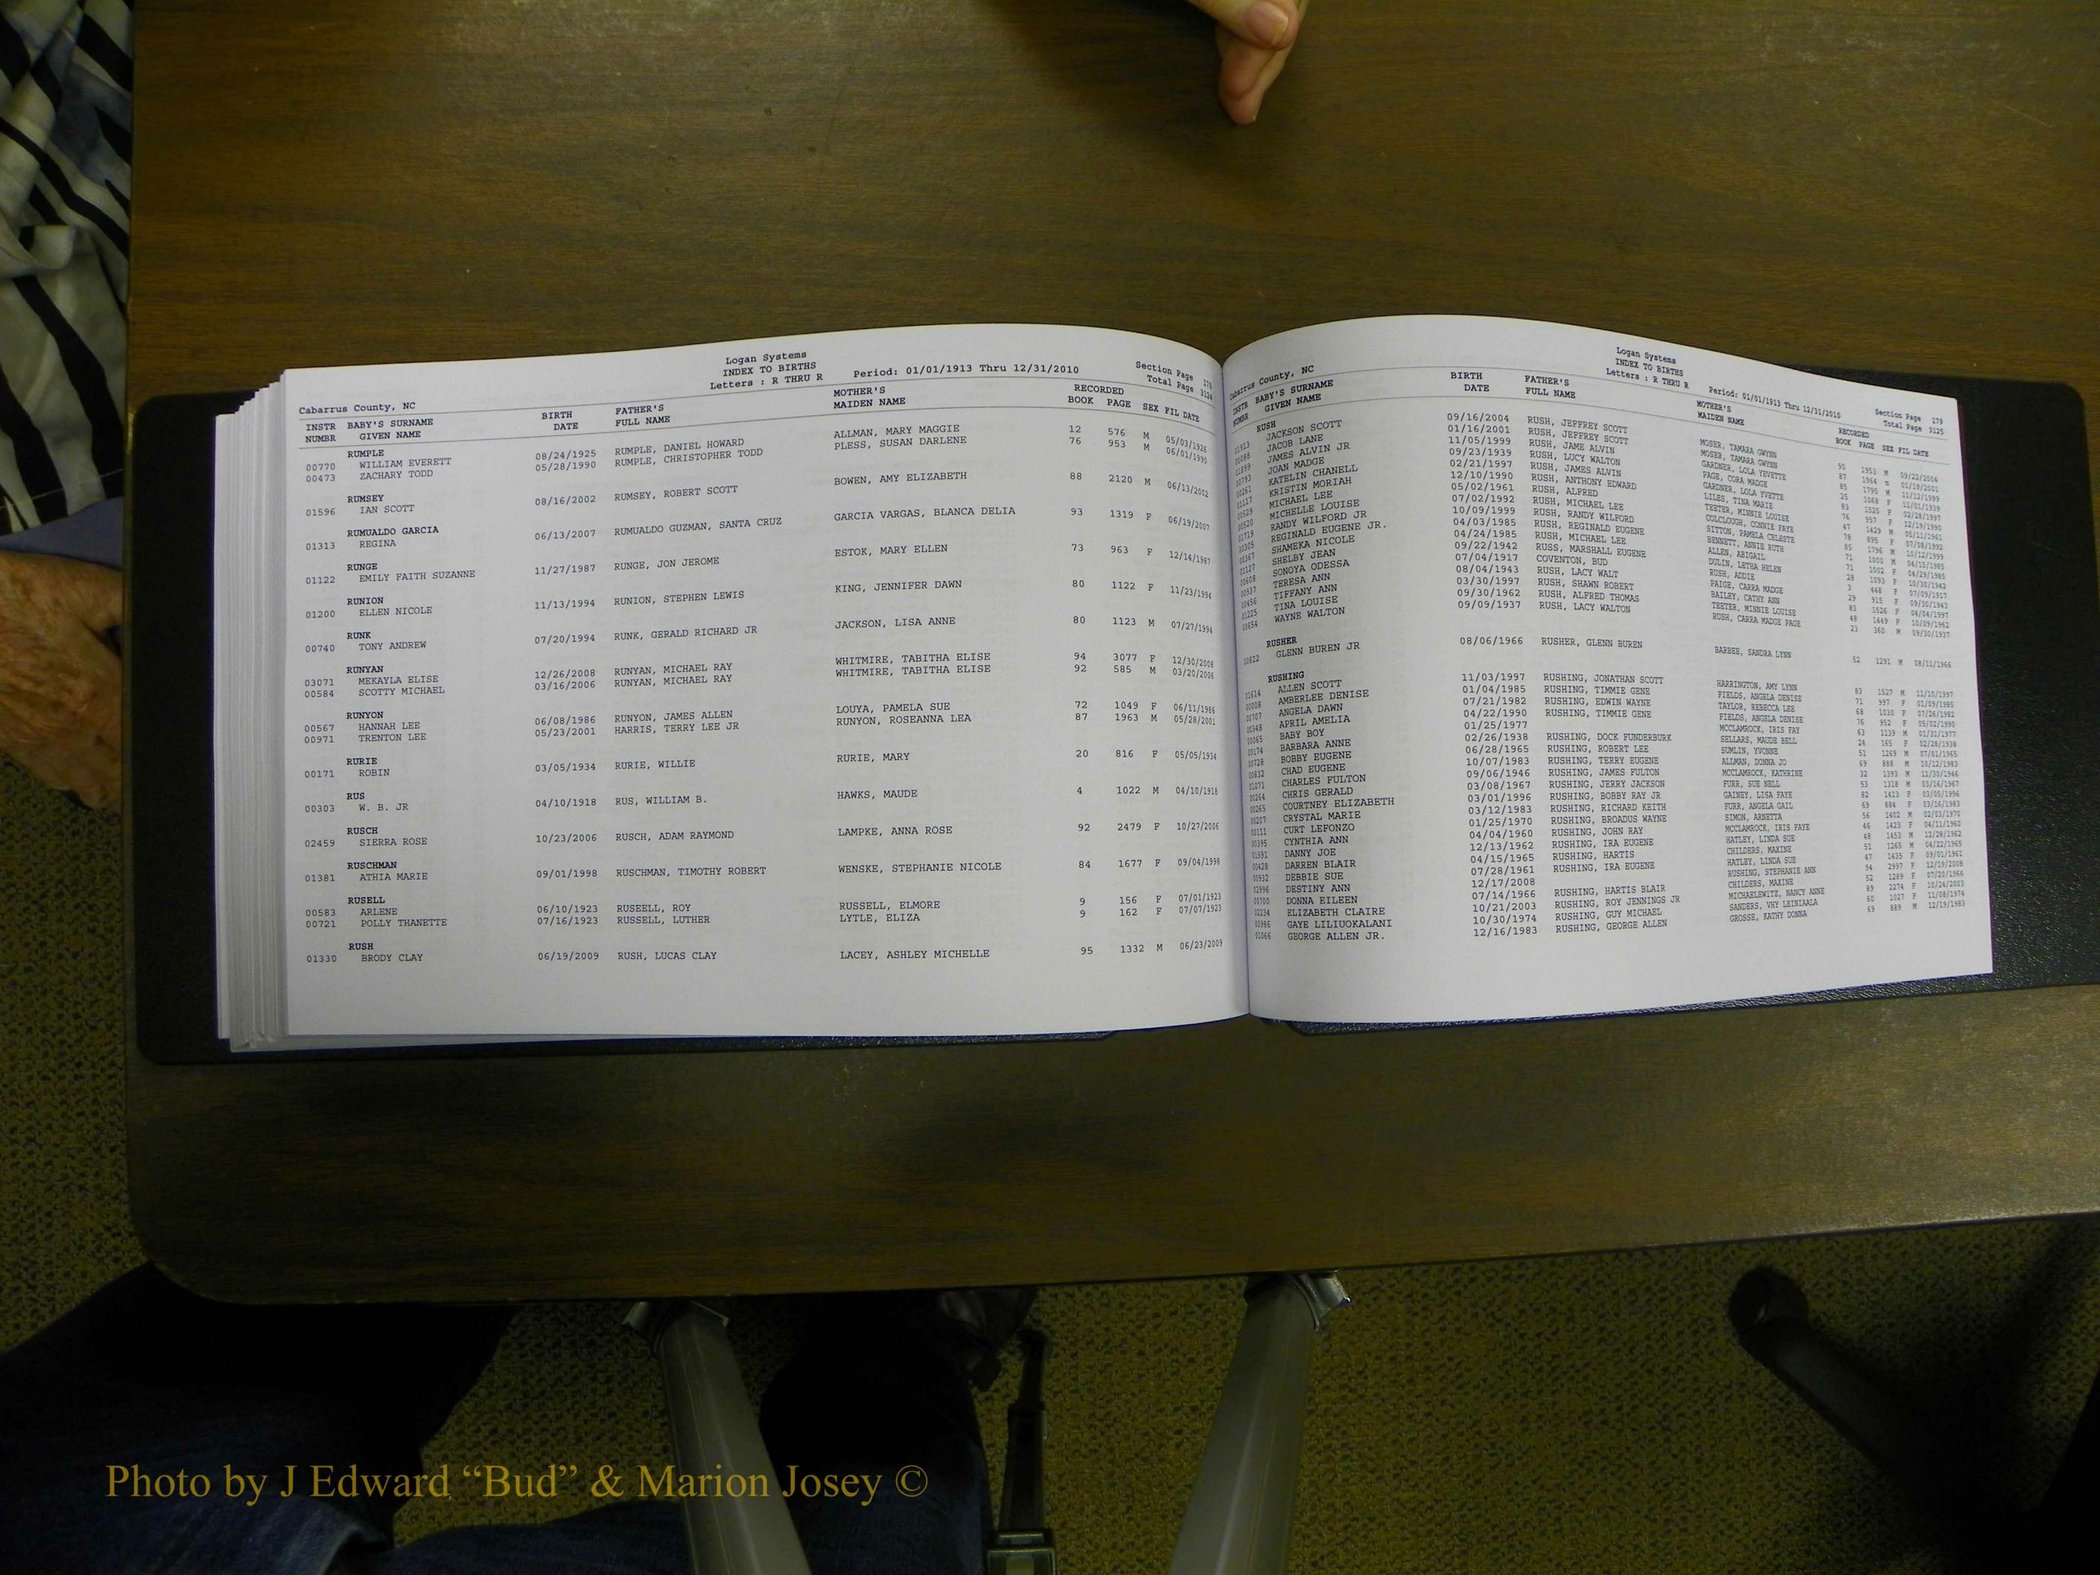 Logan Systems
INDEX TO BIRTHS
Letters : R THRU R Period: 01/01/1913 Thru 12/31/2010 Section Page 178
Cabarrus County, NC Total Page 3124
INSTR BABY'S SURNAME BIRTH FATHER'S MOTHER'S RECORDED
NUMBR GIVEN NAME DATE FULL NAME MAIDEN NAME BOOK PAGE SEX FIL DATE
RUMPLE
00770 WILLIAM EVERETT 08/24/1925 RUMPLE, DANIEL HOWARD ALLMAN, MARY MAGGIE 12 576 M 05/03/1926
00473 ZACHARY TODD 05/28/1990 RUMPLE, CHRISTOPHER TODD PLESS, SUSAN DARLENE 76 953 M 06/01/1990
RUMSEY
01596 IAN SCOTT 08/16/2002 RUMSEY, ROBERT SCOTT BOWEN, AMY ELIZABETH 88 2120 M 06/13/2002
RUMUALDO GARCIA
01313 REGINA 06/13/2007 RUMUALDO GUZMAN, SANTA CRUZ GARCIA VARGAS, BLANCA DELIA 93 1319 F 06/19/2007
RUNGE
01122 EMILY FAITH SUZANNE 11/27/1987 RUNGE, JON JEROME ESTOK, MARY ELLEN 73 963 F 12/14/1987
RUNION
01200 ELLEN NICOLE 11/13/1994 RUNION, STEPHEN LEWIS KING, JENNIFER DAWN 80 1122 F 11/23/1994
RUNK
00740 TONY ANDREW 07/20/1994 RUNK, GERALD RICHARD JR JACKSON, LISA ANNE 80 1123 M 07/27/1994
RUNYAN
03071 MEKAYLA ELISE 12/26/2008 RUNYAN, MICHAEL RAY WHITMIRE, TABITHA ELISE 94 3077 F 12/30/2008
00584 SCOTTY MICHAEL 03/16/2006 RUNYAN, MICHAEL RAY WHITMIRE, TABITHA ELISE 92 585 M 03/20/2006
RUNYON
00567 HANNAH LEE 06/08/1986 RUNYON, JAMES ALLEN LOUYA, PAMELA SUE 72 1049 F 06/11/1986
00971 TRENTON LEE 05/23/2001 HARRIS, TERRY LEE JR RUNYON, ROSEANNA LEA 87 1963 M 05/28/2001
RURIE
00171 ROBIN 03/05/1934 RURIE, WILLIE RURIE, MARY 20 816 F 05/05/1934
RUS
00303 W. B. JR 04/10/1918 RUS, WILLIAM B. HAWKS, MAUDE 4 1022 M 04/10/1918
RUSCH
02459 SIERRA ROSE 10/23/2006 RUSCH, ADAM RAYMOND LAMPKE, ANNA ROSE 92 2479 F 10/27/2006
RUSCHMAN
01381 ATHIA MARIE 09/01/1998 RUSCHMAN, TIMOTHY ROBERT WENSKE, STEPHANIE NICOLE 84 1677 F 09/04/1998
RUSELL
00583 ARLENE 06/10/1923 RUSEELL, ROY RUSSELL, ELMORE 9 156 F 07/01/1923
00721 POLLY THANETTE 07/16/1923 RUSSELL, LUTHER LYTLE, ELIZA 9 162 F 07/07/1923
RUSH
01330 BRODY CLAY 06/19/2009 RUSH, LUCAS CLAY LACEY, ASHLEY MICHELLE 95 1332 M 06/23/2009
Logan Systems
INDEX TO BIRTHS
Letters : R THRU R Period: 01/01/1913 Thru 12/31/2010 Section Page 179
Cabarrus County, NC Total Page 3125
INSTR BABY'S SURNAME BIRTH FATHER'S MOTHER'S RECORDED
NUMBR GIVEN NAME DATE FULL NAME MAIDEN NAME BOOK PAGE SEX FIL DATE
RUSH
01913 JACKSON SCOTT 09/16/2004 RUSH, JEFFREY SCOTT MOSER, TAMARA GWYNN 90 1953 M 09/22/2004
00088 JACOB LANE 01/16/2001 RUSH, JEFFREY SCOTT MOSER, TAMARA GWYNN 87 1964 m 01/19/2001
01899 JAMES ALVIN JR 11/05/1999 RUSH, JAME ALVIN GARDNER, LOLA YEVETTE 85 1795 M 11/12/1999
00793 JOAN MADGE 09/23/1939 RUSH, LUCY WALTON PAGE, CORA MADGE 25 1068 F 11/01/1939
00261 KATELIN CHANELL 02/21/1997 RUSH, JAMES ALVIN GARDNER, LOLA YVETTE 83 1525 F 02/28/1997
01117 KRISTIN MORIAH 12/10/1990 RUSH, ANTHONY EDWARD LILES, TINA MARIE 76 957 F 12/19/1990
00529 MICHAEL LEE 05/02/1961 RUSH, ALFRED TEETER, MINNIE LOUISE 47 1429 M 05/11/1961
00520 MICHELLE LOUISE 07/02/1992 RUSH, MICHAEL LEE COLCLOUGH, CONNIE FAYE 78 895 F 07/08/1992
01719 RANDY WILFORD JR 10/09/1999 RUSH, RANDY WILFORD SITTON, PAMELA CELESTE 85 1796 M 10/12/1999
00305 REGINALD EUGENE JR. 04/03/1985 RUSH, REGINALD EUGENE BENNETT, ANNIE RUTH 71 1000 M 04/15/1985
00367 SHAMEKA NICOLE 04/24/1985 RUSH, MICHAEL LEE ALLEN, ABIGAIL 71 1002 F 04/29/1985
01127 SHELBY JEAN 09/22/1942 RUSS, MARSHALL EUGENE DULIN, LETHA HELEN 28 1093 F 10/10/1942
00608 SONOYA ODESSA 07/04/1917 COVENTON, BUD RUSH, ADDIE 3 448 F 07/09/1917
00937 TERESA ANN 08/04/1943 RUSH, LACY WALT PAIGE, CARRA MADGE 29 915 F 09/30/1943
00456 TIFFANY ANN 03/30/1997 RUSH, SHAWN ROBERT BAILEY, CATHY ANN 83 1526 F 04/04/1997
01225 TINA LOUISE 09/30/1962 RUSH, ALFRED THOMAS TEETER, MINNIE LOUISE 48 1449 F 10/09/1962
00654 WAYNE WALTON 09/09/1937 RUSH, LACY WALTON RUSH, CARRA MADGE PAGE 23 360 M 09/30/1937
RUSHER
00822 GLENN BUREN JR 08/06/1966 RUSHER, GLENN BUREN BARBEE, SANDRA LYNN 52 1291 M 08/11/1966
RUSHING
01614 ALLEN SCOTT 11/03/1997 RUSHING, JONATHAN SCOTT HARRINGTON, AMY LYNN 83 1527 M 11/10/1997
00008 AMBERLEE DENISE 01/04/1985 RUSHING, TIMMIE GENE FIELDS, ANGELA DENISE 71 997 F 01/09/1985
00707 ANGELA DAWN 07/21/1982 RUSHING, EDWIN WAYNE TAYLOR, REBECCA LEE 68 1030 F 07/26/1982
00348 APRIL AMELIA 04/22/1990 RUSHING, TIMMIE GENE FIELDS, ANGELA DENISE 76 952 F 05/02/1990
00065 BABY BOY 01/25/1977 MCCLAMROCK, IRIS FAY 63 1139 M 01/31/1977
00174 BARBARA ANNE 02/26/1938 RUSHING, DOCK FUNDERBURK SELLARS, MAUDE BELL 24 165 F 02/28/1938
00728 BOBBY EUGENE 06/28/1965 RUSHING, ROBERT LEE SUMLIN, YVONNE 51 1269 M 07/01/1965
00832 CHAD EUGENE 10/07/1983 RUSHING, TERRY EUGENE ALLMAN, DONNA JO 69 888 M 10/12/1983
01071 CHARLES FULTON 09/06/1946 RUSHING, JAMES FULTON MCCLAMROCK, KATHRINE 32 1393 M 11/30/1946
00264 CHRIS GERALD 03/08/1967 RUSHING, JERRY JACKSON FURR, SUE NELL 53 1318 M 03/16/1967
00265 COURTNEY ELIZABETH 03/01/1996 RUSHING, BOBBY RAY JR GAINEY, LISA FAYE 82 1413 F 03/05/1996
00207 CRYSTAL MARIE 03/12/1983 RUSHING, RICHARD KEITH FURR, ANGELA GAIL 69 884 F 03/16/1983
00111 CURT LEFONZO 01/25/1970 RUSHING, BROADUS WAYNE SIMON, ARNETTA 56 1402 M 02/03/1970
00395 CYNTHIA ANN 04/04/1960 RUSHING, JOHN RAY MCCLAMROCK, IRIS FAYE 46 1423 F 04/11/1960
01591 DANNY JOE 12/13/1962 RUSHING, IRA EUGENE HATLEY, LINDA SUE 48 1453 M 12/28/1962
00428 DARREN BLAIR 04/15/1965 RUSHING, HARTIS CHILDERS, MAXINE 51 1265 M 04/22/1965
00932 DEBBIE SUE 07/28/1961 RUSHING, IRA EUGENE HATLEY, LINDA SUE 47 1435 F 09/01/1961
02996 DESTINY ANN 12/17/2008 RUSHING, STEPHANIE ANN 94 2997 F 12/19/2008
00700 DONNA EILEEN 07/14/1966 RUSHING, HARTIS BLAIR CHILDERS, MAXINE 52 1289 F 07/20/1966
02234 ELIZABETH CLAIRE 10/21/2003 RUSHING, ROY JENNINGS JR MICHAELEWITZ, NANCY ANNE 89 2274 F 10/24/2003
00986 GAYE LILIUOKALANI 10/30/1974 RUSHING, GUY MICHAEL SANDERS, VHY LEINIAALA 60 1027 F 11/08/1974
01066 GEORGE ALLEN JR. 12/16/1983 RUSHING, GEORGE ALLEN GROSSE, KATHY DONNA 69 889 M 12/19/1983
Photo by J Edward “Bud” & Marion Josey ©